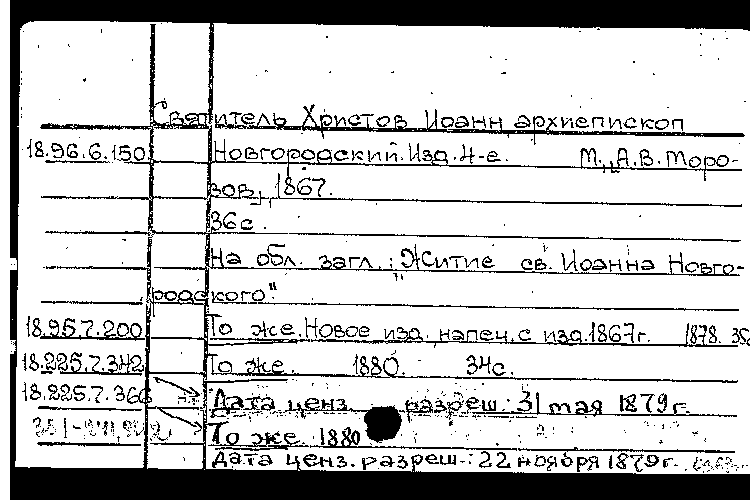 Святитель Христов Иоанн архиепископ
18.96.6.150 Новгородский. Изд. 4-е. М., "А.В. Моро-
зов", 1867.
36с.
На обл. загл.: "Житие св. Иоанна Новго-
родского."
18.95.7.200 То же. Новое изд. напеч. с изд. 1867г. 1878.
18.225.7.342 То же. 1880. 34с.
18.225.7.366 Дата ценз. разреш.: 31 мая 1879г.
То же. 1880
Дата ценз. разреш.: 22 ноября 1879г.